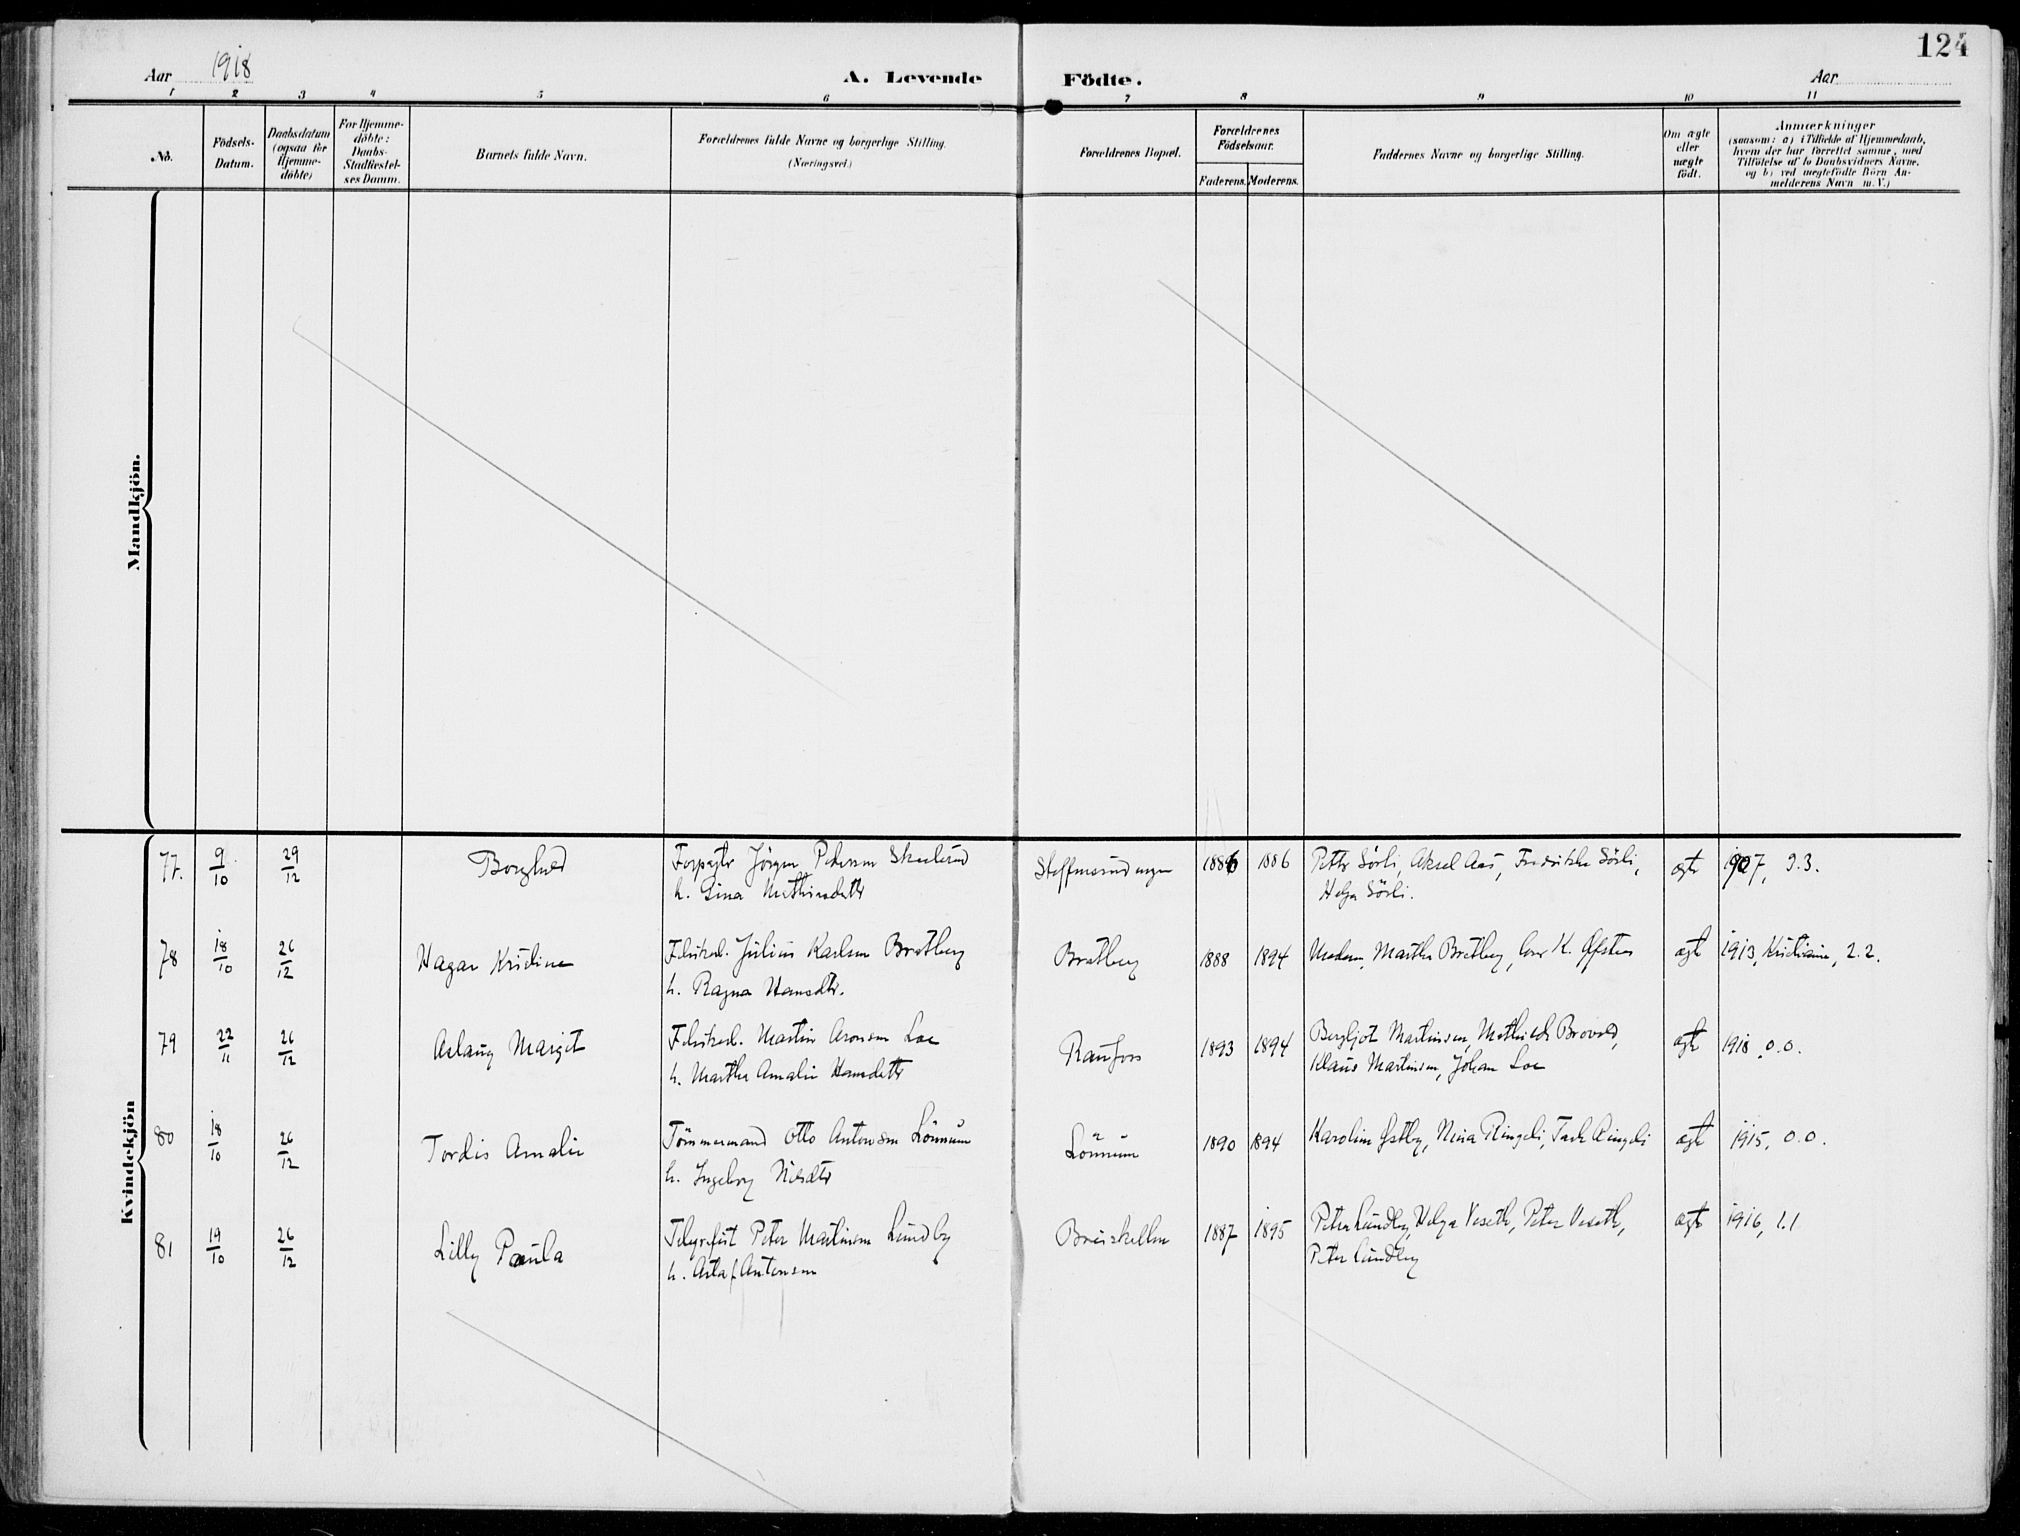 124
Aar 1918
A. Levende Födte.
Aar
1 2 3 4 5 6 7 8 9 10 11
No.
Födsels-
Datum.
Daabsdatum
(ogsaa for
Hjemme-
döbte)
For Hjemme-
döbte:
Daabs-
Stadfæstel-
ses Datum.
Barnets fulde Navn.
Forældrenes fulde Navne og borgerlige Stilling.
(Næringsvei.)
Forældrenes Bopæl.
Forældrenes
Födselsaar.
Faderens. Moderens.
Faddernes Navne og borgerlige Stilling.
Om ægte
eller
uægte
födt.
Anmærkninger
(saasom: a) i Tilfælde af Hjemmedaab,
hvem der har forrettet samme, med
Tilföielse af to Daabsvidners Navne,
og b) ved uægtefödte Börn An-
melderens Navn m.V.)
Mandkjön.
Kvindekjön
77. 9/10 29/12 Borghild Forpagter Jörgen Petersen
h. Gina
1886 1886 Petter Sörli, Aksel Aas, Fredrikke Sörli,
Helga Sörli.
ægte 1907, 3.3.
78 18/10 26/12 Hagar Kristine Fabrikarb. Julius Karlsen Bratberg
h. Ragna Hansdtr.
Bratberg 1888 1894 Moderen, Martha Bratberg, K.
ægte 1913, Kristiania, 2.2.
79 22/11 26/12 Aslaug Margit Fabrikarb. Martin Aronsen Loe
h. Martha Amalie Hansdatter
Raufoss 1893 1894 Bergljot Martinsen, Mathilde
Klaus Martinsen, Johan Loe
ægte 1918, 0.0.
80 18/10 26/12 Tordis Amalie Tömmermand Otto Antonsen Lönnum
h. Ingeborg Nilsdtr
Lönnum 1890 1894 Karoline Østby, Nina Ringeli, Ringeli
ægte 1915, 0.0.
81 19/10 26/12 Lilly Paula Telegrafist Peter Martinsen Lundby
h. Asta f. Antonsen
1887 1895 Petra Lundby, Helga Veseth, Peter Veseth,
Peter Lundby
ægte 1916, 1.1